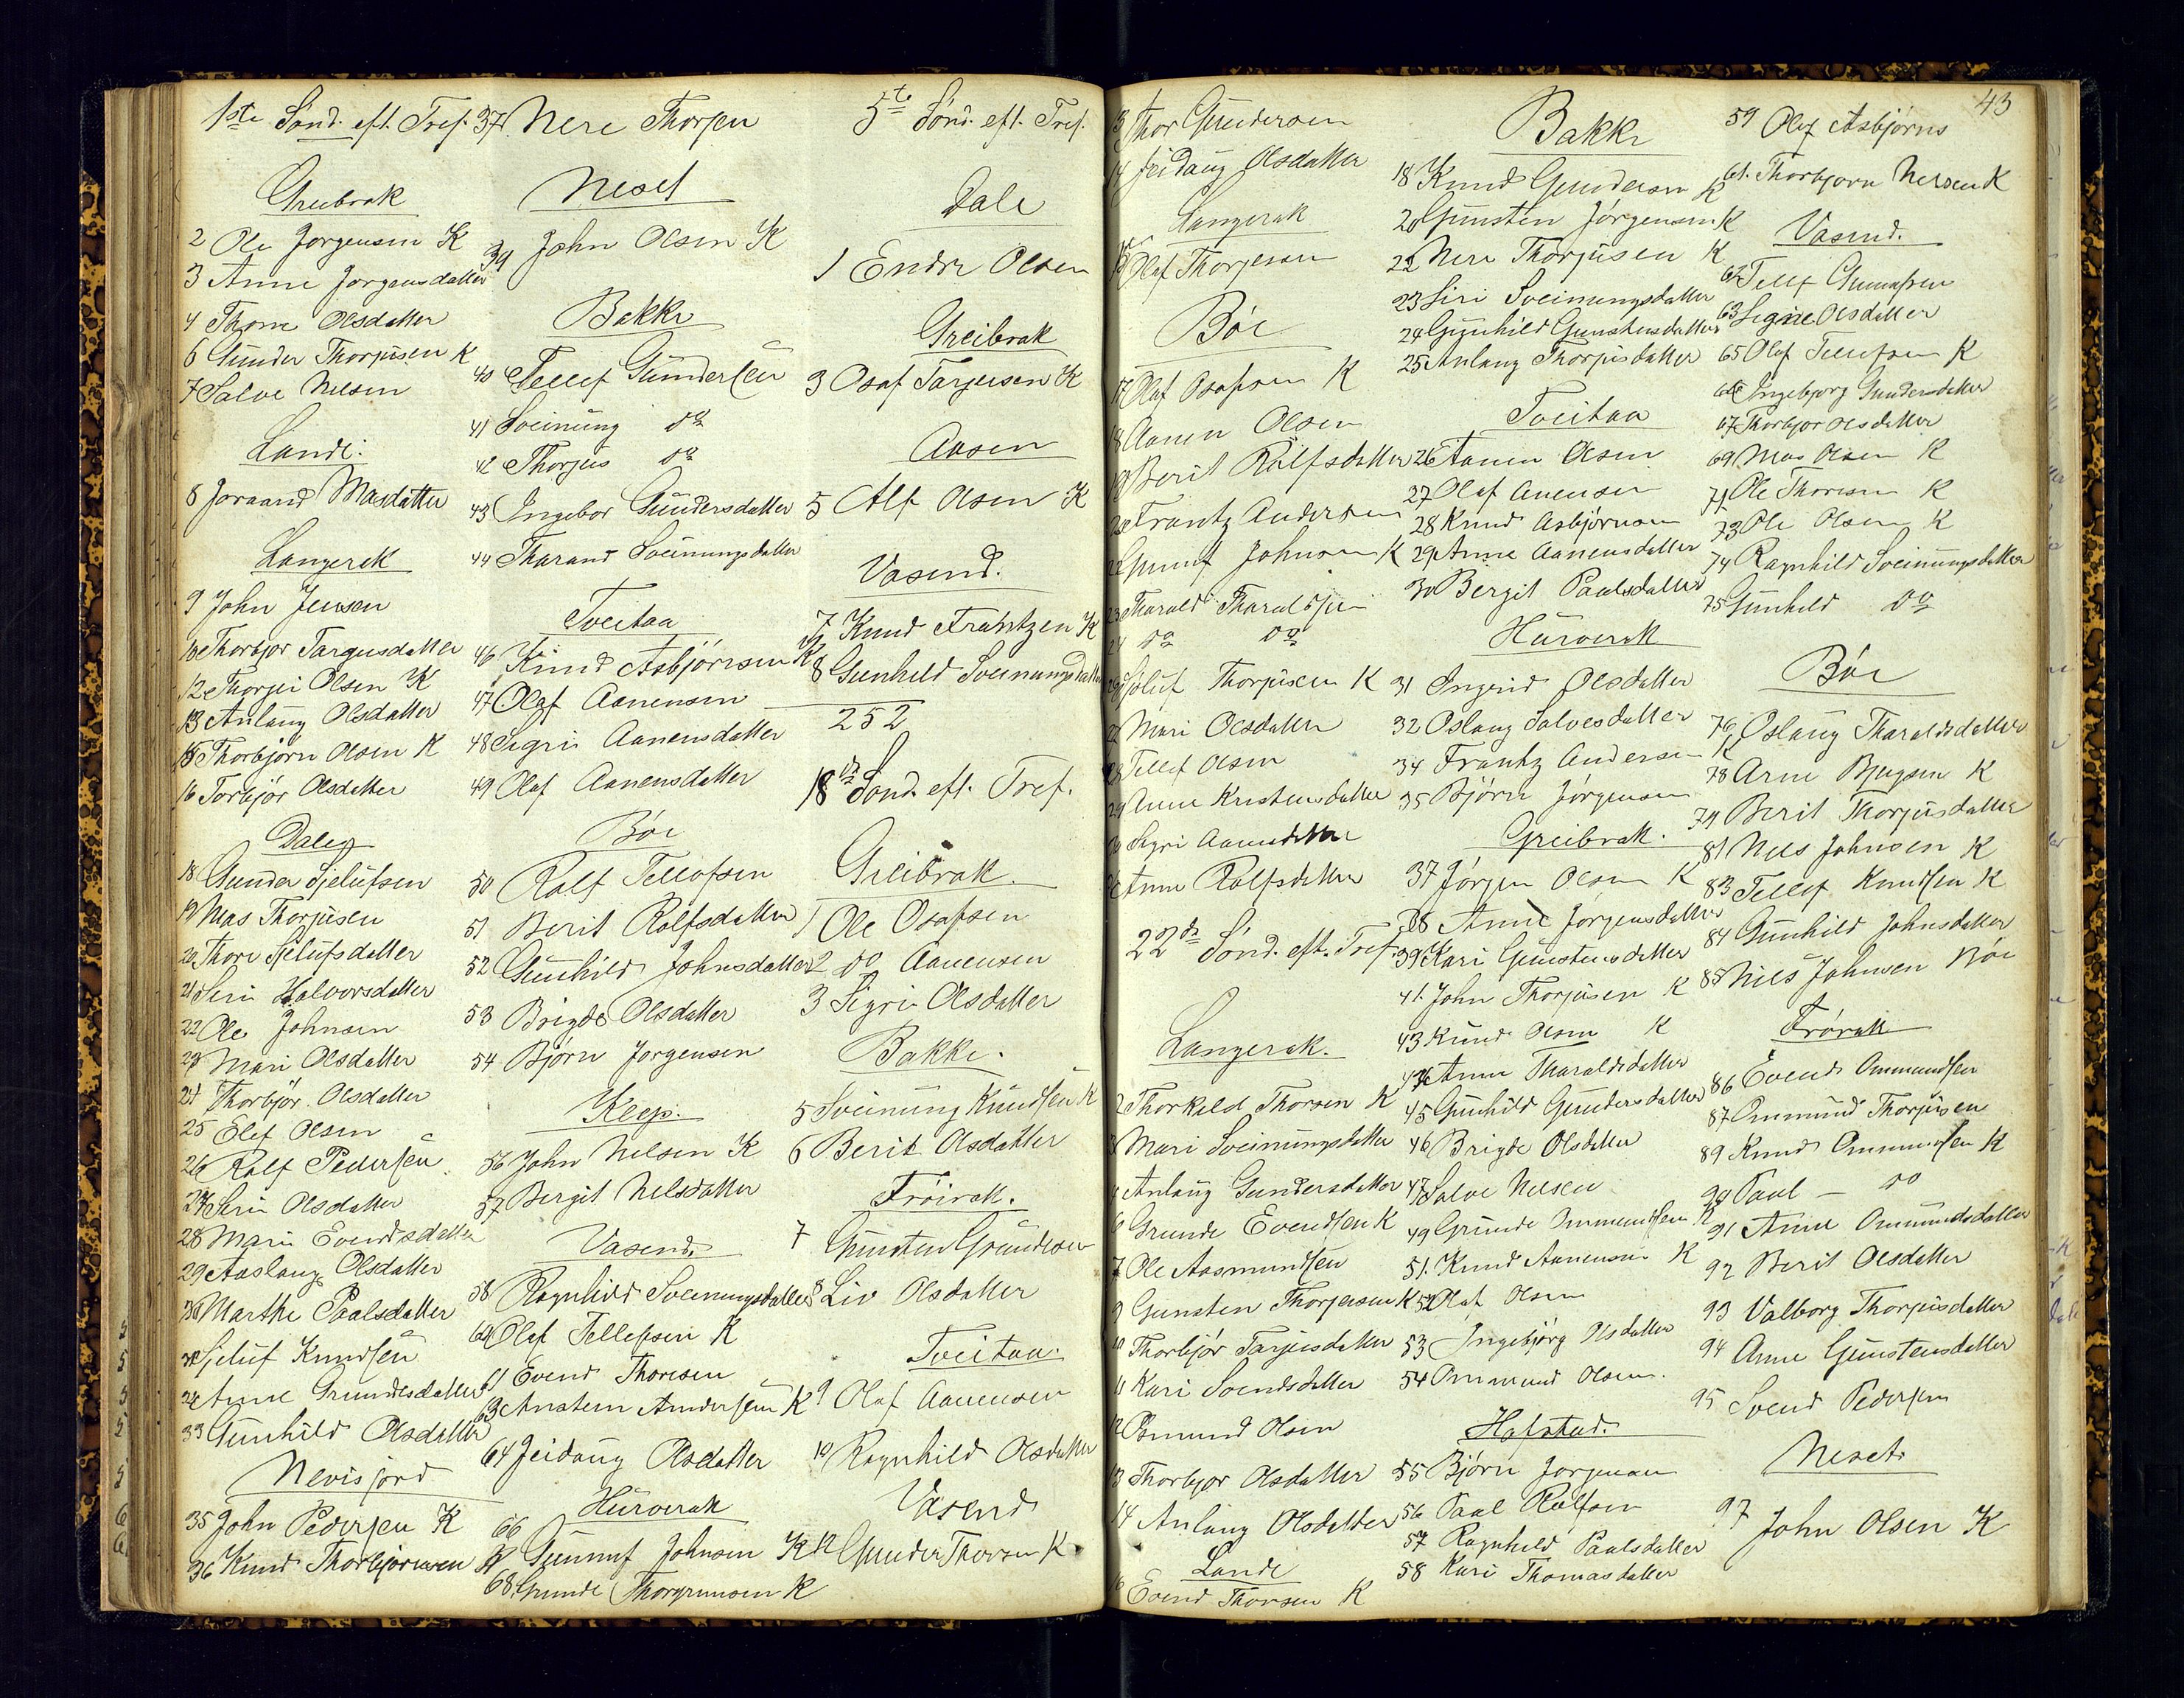 1ste Sønd. eft. Tref.
Greibrok
2 Ole Jørgensen K
3 Anne Jørgensdatter
4 Thone Olsdatter
6 Gunder Thorjusen K
7 Salve Nilsen
Lande:
8 Joraand Masdatter
Langerak
9 John Jensen
10 Thorbjor Targusdatter
12 Thorjei Olsen K
13 Anlaug Olsdatter
15 Thorbjørn Olsen K
16 Torbjør Olsdatter
Dale
18 Gunder Sjelufsen
19 Mas Thorjusen
20 Thore Sjelufsdatter
21 Siri Halvorsdatter
22 Ole Johnsen
23 Mari Olsdatter
24 Thorbjør Olsdatter
25 Elef Olsen
26 Rolf Pedersen
27 Siri Olsdatter
28 Mari Evendsdatter
29 Aaslaug Olsdatter
30 Marthe Paalsdatter
31 Sjeluf Knudsen
32 Anne Grundesdatter
33 Gunhild Olsdatter
Nevisjord
35 John Pedersen K
36 Knud Thorbjørnsen K
37 Nere Thorsen
Neset
39 John Olsen K
Bakke
40 Tellef Gundersen
41 Sveinung do
42 Thorjus do
43 Ingebor Gundersdatter
44 Tharand Sveinungsdatter
Tveitaa
46 Knud Asbjørnsen K
47 Olaf Aanensen
48 Sigri Aanensdatter
49 Olaf Aanensdatter
Bøe
50 Rolf Tellefsen
51 Berit Rolfsdatter
52 Gunhild Johnsdatter
53 Brigde Olsdatter
54 Bjørn Jørgensen
Kleep.
56 John Nelsen K
57 Bergit Nelsdatter
Vasend.
58 Ragnhild Sveinungsdatter
60 Olaf Tellefsen K
61 Evend Thoresen
63 Anstein Andersen K
64 Jeidaug Olsdatter
Hurverak
66 Gunnuf Johnsen K
68 Grunde Thorgrimsen K
5te Sønd. eft. Tref.
Dale
1 Endre Olsen
Greibrok
3 Osaf Tarjeisen K
Aasen
5 Alf Olsen K
Vasend.
7 Knud Frantzen K
8 Gunhild Sveinungsdatter
252
18de Sønd. eft. Tref.
Greibrok.
1 Ole Osafsen
2 do Aanensen
3 Sigri Olsdatter
Bakke.
5 Sveinung Knudsen K
6 Berit Olsdatter
Frøirak.
7 Gunsten Grundesen
8 Liv Olsdatter
Tveitaa.
9 Olaf Aanensen
10 Ragnhild Olsdatter
Vasend
12 Gunder Thorsen K
43
13 Thor Gundersen
14 Jeidaug Olsdatter
Langerak
15 Olaf Thorjesen
Bøe
17 Olaf Osafsen K
18 Aanen Olsen
19 Berit Rolfsdatter
20 Frantz Andersen
22 Gunnuf Johnsen K
23 Tharald Tharaldsen
24 do do
26 Sjeluf Thorjusen K
27 Mari Olsdatter
28 Tellef Olsen
29 Anne Kristensdatter
30 Sigri Aanensdatter
Anne Rolfsdatter
22de Sønd. eft. Tref.
Langerak.
2 Thorkild Thorsen K
3 Mari Sveinungsdatter
4 Anlaug Gundersdatter
6 Grunde Evendsen K
7 Ole Aasmundsen
9 Gunsten Thorjersen K
10 Thorbjør Tarjusdatter
11 Kari Svendsdatter
12 Osmund Olsen
13 Thorbjør Olsdatter
14 Anlaug Olsdatter
Lande
16 Evend Thorsen K
Bakke
18 Knud Gundersen K
20 Gunsten Jørgensen K
22 Nere Thorjusen K
23 Siri Sveinungsdatter
24 Gunhild Gunstensdatter
25 Anlaug Thorjusdatter
Tveitaa
26 Aanen Olsen
27 Olaf Anensen
28 Knud Asbjørnsen
29 Anne Aanensdatter
30 Bergit Paalsdatter
Hurverak
31 Ingerid Olsdatter
32 Oslaug Salvesdatter
34 Frantz Andersen K
35 Bjørn Jørgensen
Greibrok.
37 Jørgen Olsen K
38 Anne Jørgensdatter
39 Kari Gunstensdatter
41. John Thorjusen K
43 Knud Olsen K
44 Anne Tharaldsdatter
45 Gunhild Gundersdatter
46 Brigde Olsdatter
47 Salve Nilsen
49 Grunde Ommundsen K
51. Knud Aanensen K
52 Olaf Olsen
53 Ingebjørg Olsdatter
54 Ommund Olsen.
Hofstad.
55 Bjørn Jørgensen
56 Paal Rolfsen
57 Ragnhild Paalsdatter
58 Kari Thomasdatter
59 Olaf Asbjørns
61. Thorbjorn Nersen K
Vasend.
62 Tellef Gunnufsen
63 Signe Olsdatter
65 Olaf Tellefsen K
66 Ingebjorg Gundersdatter
67 Thorbjor Olsdatter
69 Mas Olsen K
71 Ole Thoresen K
73 Ole Olsen K
74 Ragnhild Sveinungsdatter
75 Gunhild do
Bøe
76 Oslaug Tharaldsdatter
78 Arne Bjugsen K
79 Berit Thorjusdatter
81 Niels Johnsen K
83 Tellef Knudsen K
84 Gunhild Johnsdatter
85 Niels Johnsen Bøe
Frørak
86 Evend Ommundsen
87 Ommund Thorjusen
89 Knud Ommundsen K
90 Paul — do
91 Anne Ommundsdatter
92 Berit Olsdatter
93 Valborg Thorjusdatter
94 Anne Gunstensdatter
95 Svend Pedersen
Neset.
97 John Olsen K